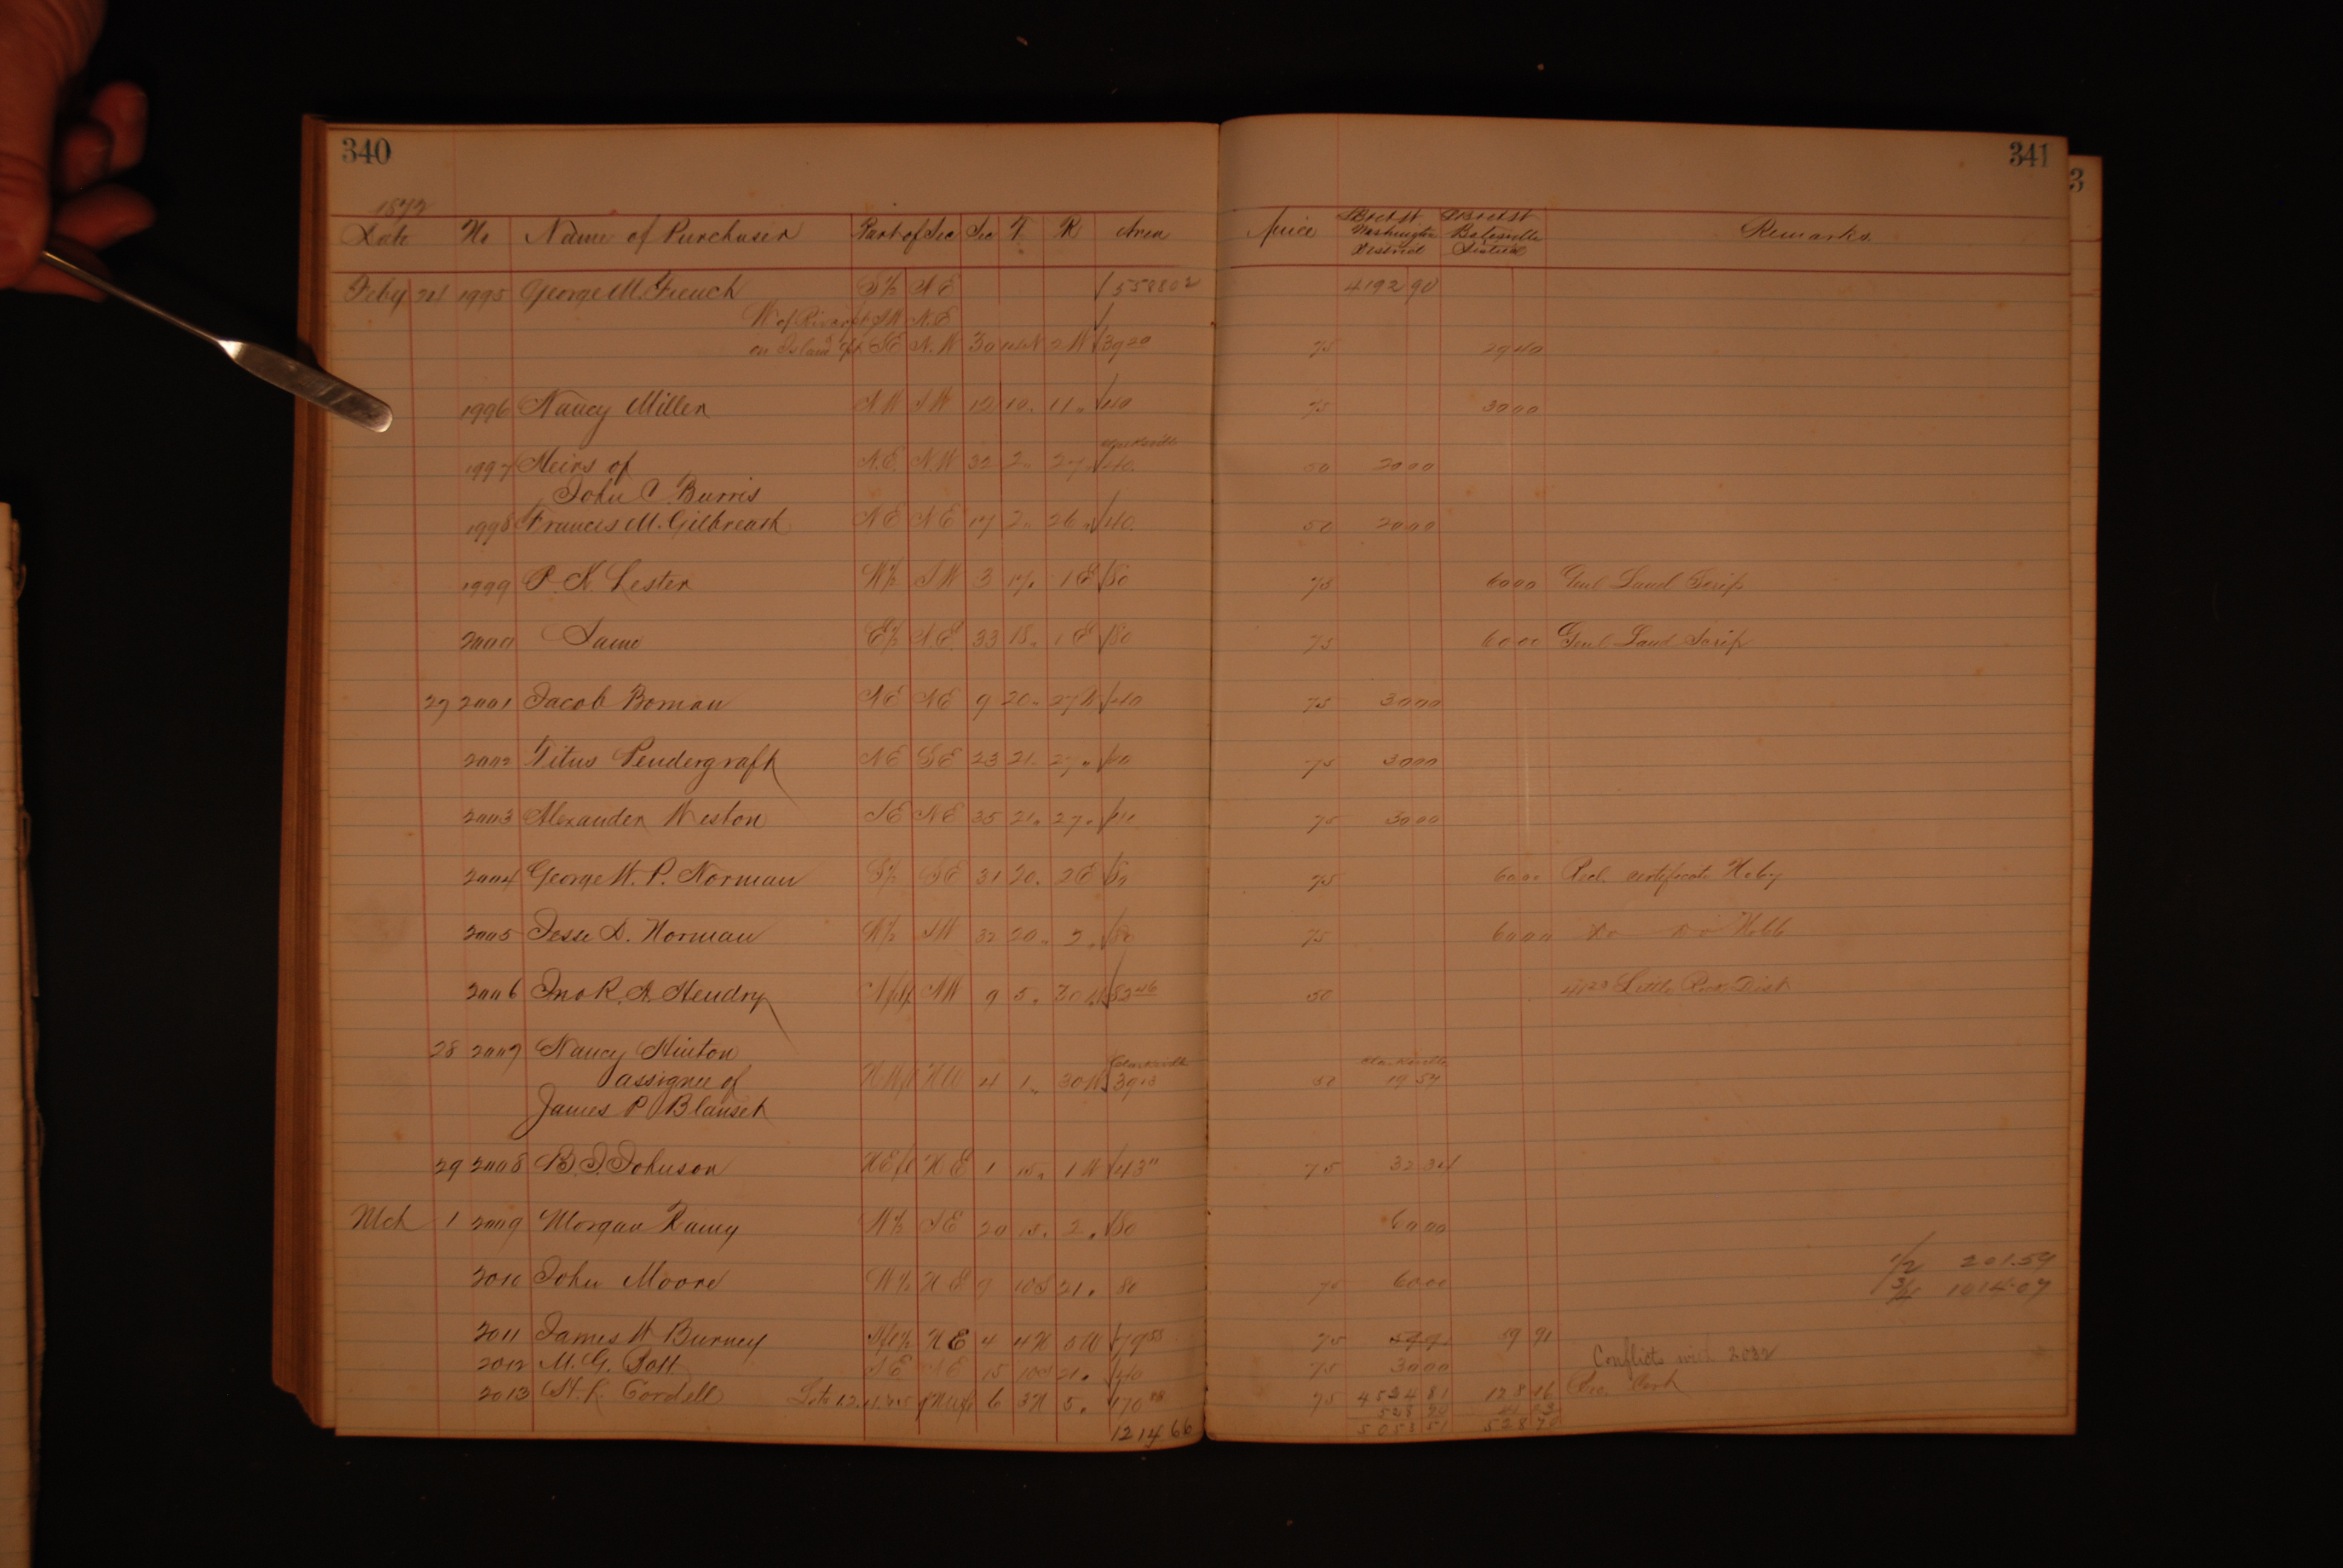 340
341
3
1872
Date No Name of Purchaser Part of Sec Sec T R Area Price Washington District Batesville District Remarks
Feby 1995 George M. French S½ NE 558802 4192 90
W of River SW N.E
on Island SE N.W 30 2W 39 20 75 29 40
1996 Nancy Miller SW 10 11 40 75 30 00
1997 Heirs of N.E. N.W 32 2 27 40 50 20 00
John C. Burris
1998 Frances M. Gilbreath NE NE 17 2 26 40 50 20 00
1999 P. N. Lester W½ SW 3 17 1 E 80 75 60 00 Genl Land Scrip
2000 Same E½ NE 33 18 1 E 80 75 60 00 Genl Land Scrip
27 2001 Jacob Boman NE NE 9 20 27W 40 75 30 00
2002 Titus Pendergraft NE SE 23 21 27 40 75 30 00
2003 Alexander Weston SE NE 35 21 27 40 75 30 00
2004 George W. P. Norman S½ SE 31 20 2E 80 75 60 00 certificate
2005 Jesse D. Norman W½ SW 32 20 2 80 75 60 00 Do Do
2006 Jno R. A. Hendry NW 9 5 30W 82 46 50 Little Rock Dist
28 2007 Nancy Hinton
assignee of NW 4 1 30W Clarksville 39 13 50 Clarksville 19 57
James P Blanset
29 2008 B. J. Johnson NE NE 1 15 1 W 43 11 75 32 34
Mch 1 2009 Morgan Ramy SE 20 15 2 80 60 00
2010 John Moore W½ NE 9 10S 21 80 75 60 00
1/2 201.59
3/4 1014.07
2011 James W Burney NE 4 4N 79 55 75 59 91
2012 M. G. SE 15 10S 21 40 75 30 00 Conflicts with 2032
2013 W. R. Cordell Lots 1.2. 6 3N 5 170 75 4524 81 128 16
528 70
1214 66 5053 51 528 70